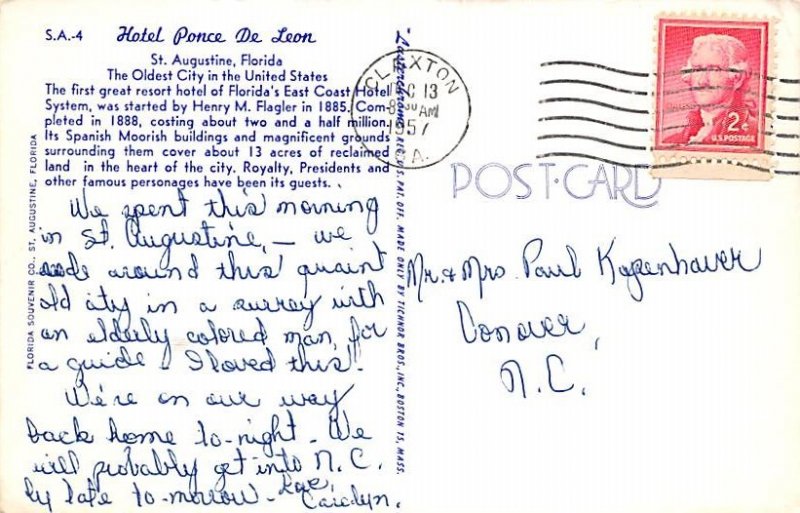 S.A.-4 Hotel Ponce De Leon
St. Augustine, Florida
The Oldest City in the United States
The first great resort hotel of Florida's East Coast Hotel
System, was started by Henry M. Flagler in 1885. Com-
pleted in 1888, costing about two and a half million.
Its Spanish Moorish buildings and magnificent grounds
surrounding them cover about 13 acres of reclaimed
land in the heart of the city. Royalty, Presidents and
other famous personages have been its guests. . .
We spent this morning
in St. Augustine, — we
rode around this quaint
old city in a surrey with
an elderly colored man, for
a guide. I loved this!
We're on our way
back home to-night. We
will probably get into N.C.
by late to-morrow - Love,
Carolyn.
FLORIDA SOUVENIR CO., ST. AUGUSTINE, FLORIDA
REG. U.S. PAT. OFF. MADE ONLY BY TICHNOR BROS., INC., BOSTON 15, MASS.
CLAXTON
13
AM
1957
2¢
U.S. POSTAGE
POST-CARD
Mr. & Mrs. Paul Kagenhaver
Conover,
N.C.